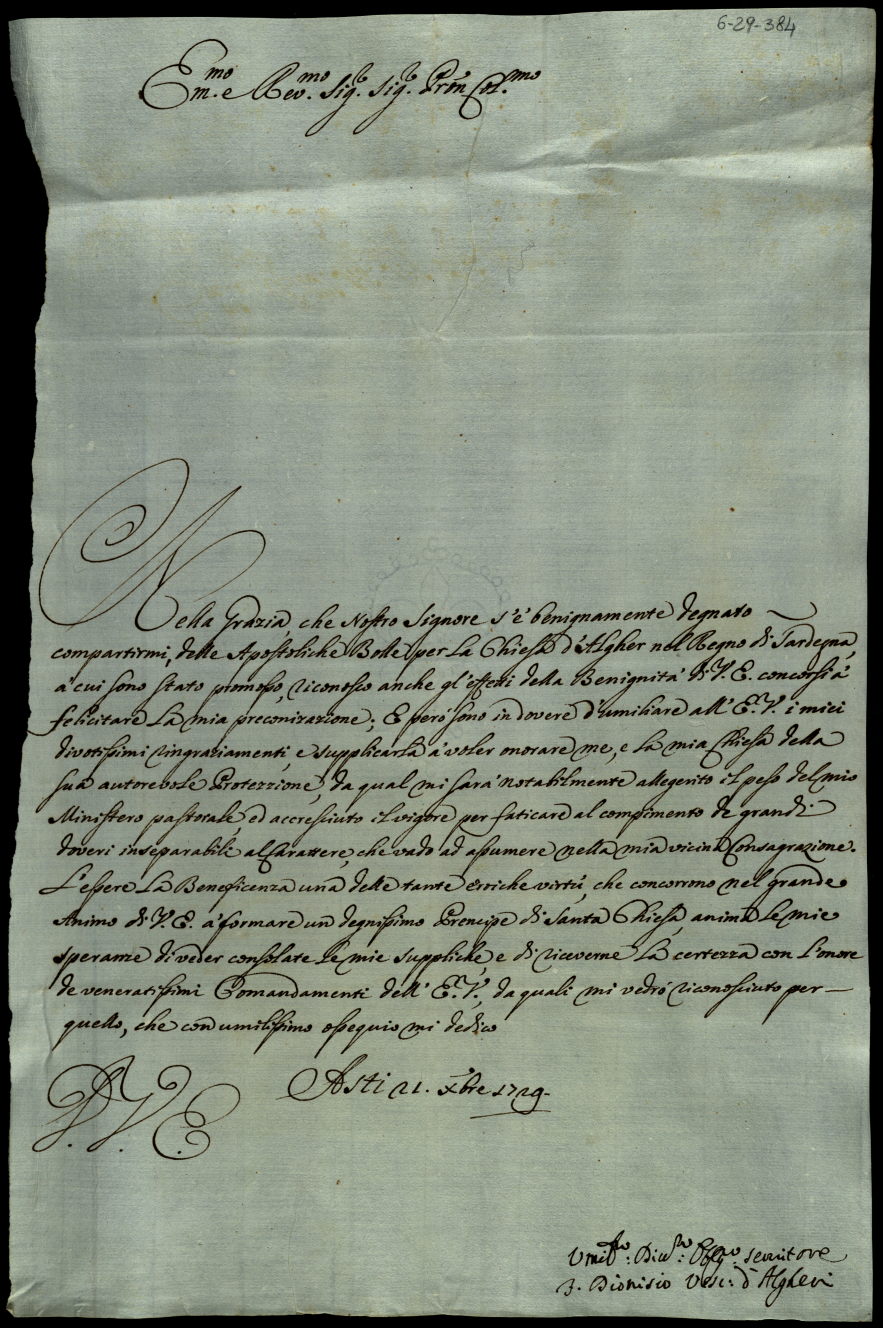 6-29-384
Em.mo e Rev.mo Sig.r Sig.r Prōn Col.mo
Nella Grazia, che Nostro Signore s'è benignamente degnato
compartirmi, delle Apostoliche Bolle per La Chiesa d'Algher nel Regno di Sardegna,
à cui sono stato promosso, riconosco anche gl'effetti della Benignità di V. E. concorsi à
felicitare La mia preconizazione; E però sono in dovere d'umiliare all' E. V. i miei
divotissimi ringraziamenti, e supplicarla à voler onorare me, e La mia Chiesa della
sua autorevole Protezzione, da qual mi sarà notabilmente allegerito il peso del mio
Ministero pastorale, ed accresciuto il vigore per faticare al compimento de grandi
doveri inseparabili al Carattere, che vado ad assumere nella mia vicina Consagrazione.
L'essere La Beneficenza una delle tante eroiche virtù, che concorrono nel grande
Animo di V. E. à formare un degnissimo Prencipe di Santa Chiesa, anima Le mie
speranze di veder consolate Le mie suppliche, e di riceverne La certezza con L'onore
de veneratissimi Comandamenti dell' E. V., da quali mi vedrò riconosciuto per
quello, che con umilissimo ossequio mi dedico
D. V. E.
Asti 21. Xbre 1729.
Umil.mo: Div.mo: Obblig.mo servitore
F. Dionisio Vesc: d'Algheri